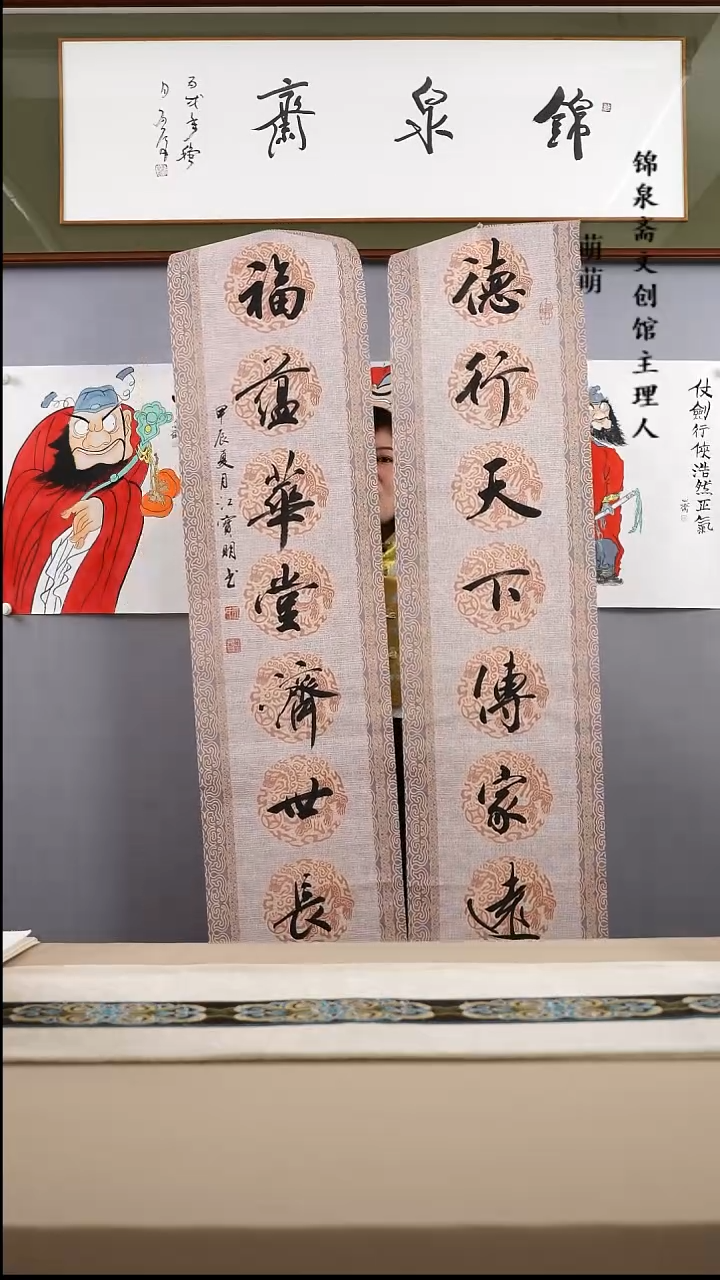 錦泉齋
锦泉斋文创馆主理人
萌萌
德行天下傳家遠
福蕴華堂濟世長
甲辰夏月江寶明书
仗劍行俠浩然正氣